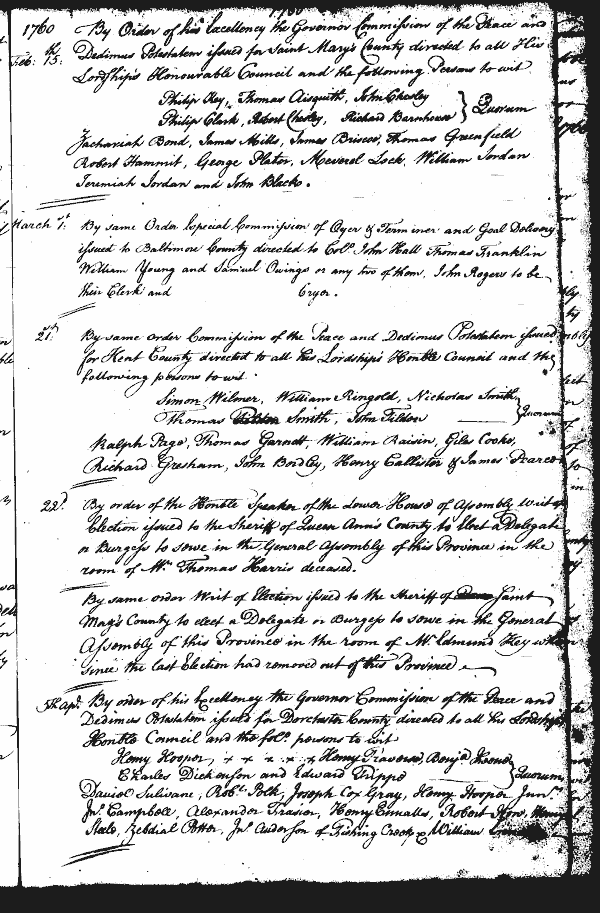 1760
Feb: 15th: By Order of his Excellency the Governor Commission of the Peace and
Dedimus Potestatem issued for Saint Mary's County directed to all His
Lordship's Honourable Council and the following Persons to wit
Philip Key, Thomas Aisquith, John Chesley
Philip Clark, Robert Chesley, Richard Barnhouse } Quorum
Zachariah Bond, James Mills, James Briscoe, Thomas Greenfield
Robert Hammit, George Plater, Meverel Lock, William Jordan
Jeremiah Jordan and John Black.
March 1st: By same Order Especial Commission of Oyer & Terminer and Goal Delivery
issued to Baltimore County directed to Colo. John Hall Thomas Franklin
William Young and Samuel Owings or any two of them, John Rogers to be
their Clerk and Cryer.
21st: By same order Commission of the Peace and Dedimus Potestatem issued
for Kent County directed to all his Lordship's Honble Council and the
following persons to wit
Simon Wilmer, William Ringold, Nicholas Smith,
Thomas Smith, John Tilden } Quorum
Ralph Page, Thomas Garnett, William Raisin, Giles Cooke,
Richard Gresham, John Bordley, Henry Callister & James Pearce
22d. By order of the Honble Speaker of the Lower House of Assembly Writ of
Election issued to the Sheriff of Queen Ann's County to Elect a Delegate
or Burgess to serve in the General Assembly of this Province in the
room of Mr. Thomas Harris deceased.
By same order Writ of Election issued to the Sheriff of Saint
Mary's County to elect a Delegate or Burgess to serve in the General
Assembly of this Province in the room of Mr. Edmund Key who
since the last Election had removed out of this Province
5th Apr. By order of his Excellency the Governor Commission of the Peace and
Dedimus Potestatem issued for Dorchester County directed to all his Lordship's
Honble Council and the follo. persons to wit
Henry Hooper, x x x x x Henry Travers, Benja Keene
Charles Dickenson and Edward Trippe } Quorum
David Sulivane, Robt. Polk, Joseph Cox Gray, Henry Hooper Junr.
Jno. Campbell, Alexander Frasier, Henry Ennalls, Robert How, Henry
Steele, Zebdial Potter, Jno. Anderson of Fishing Creek x William